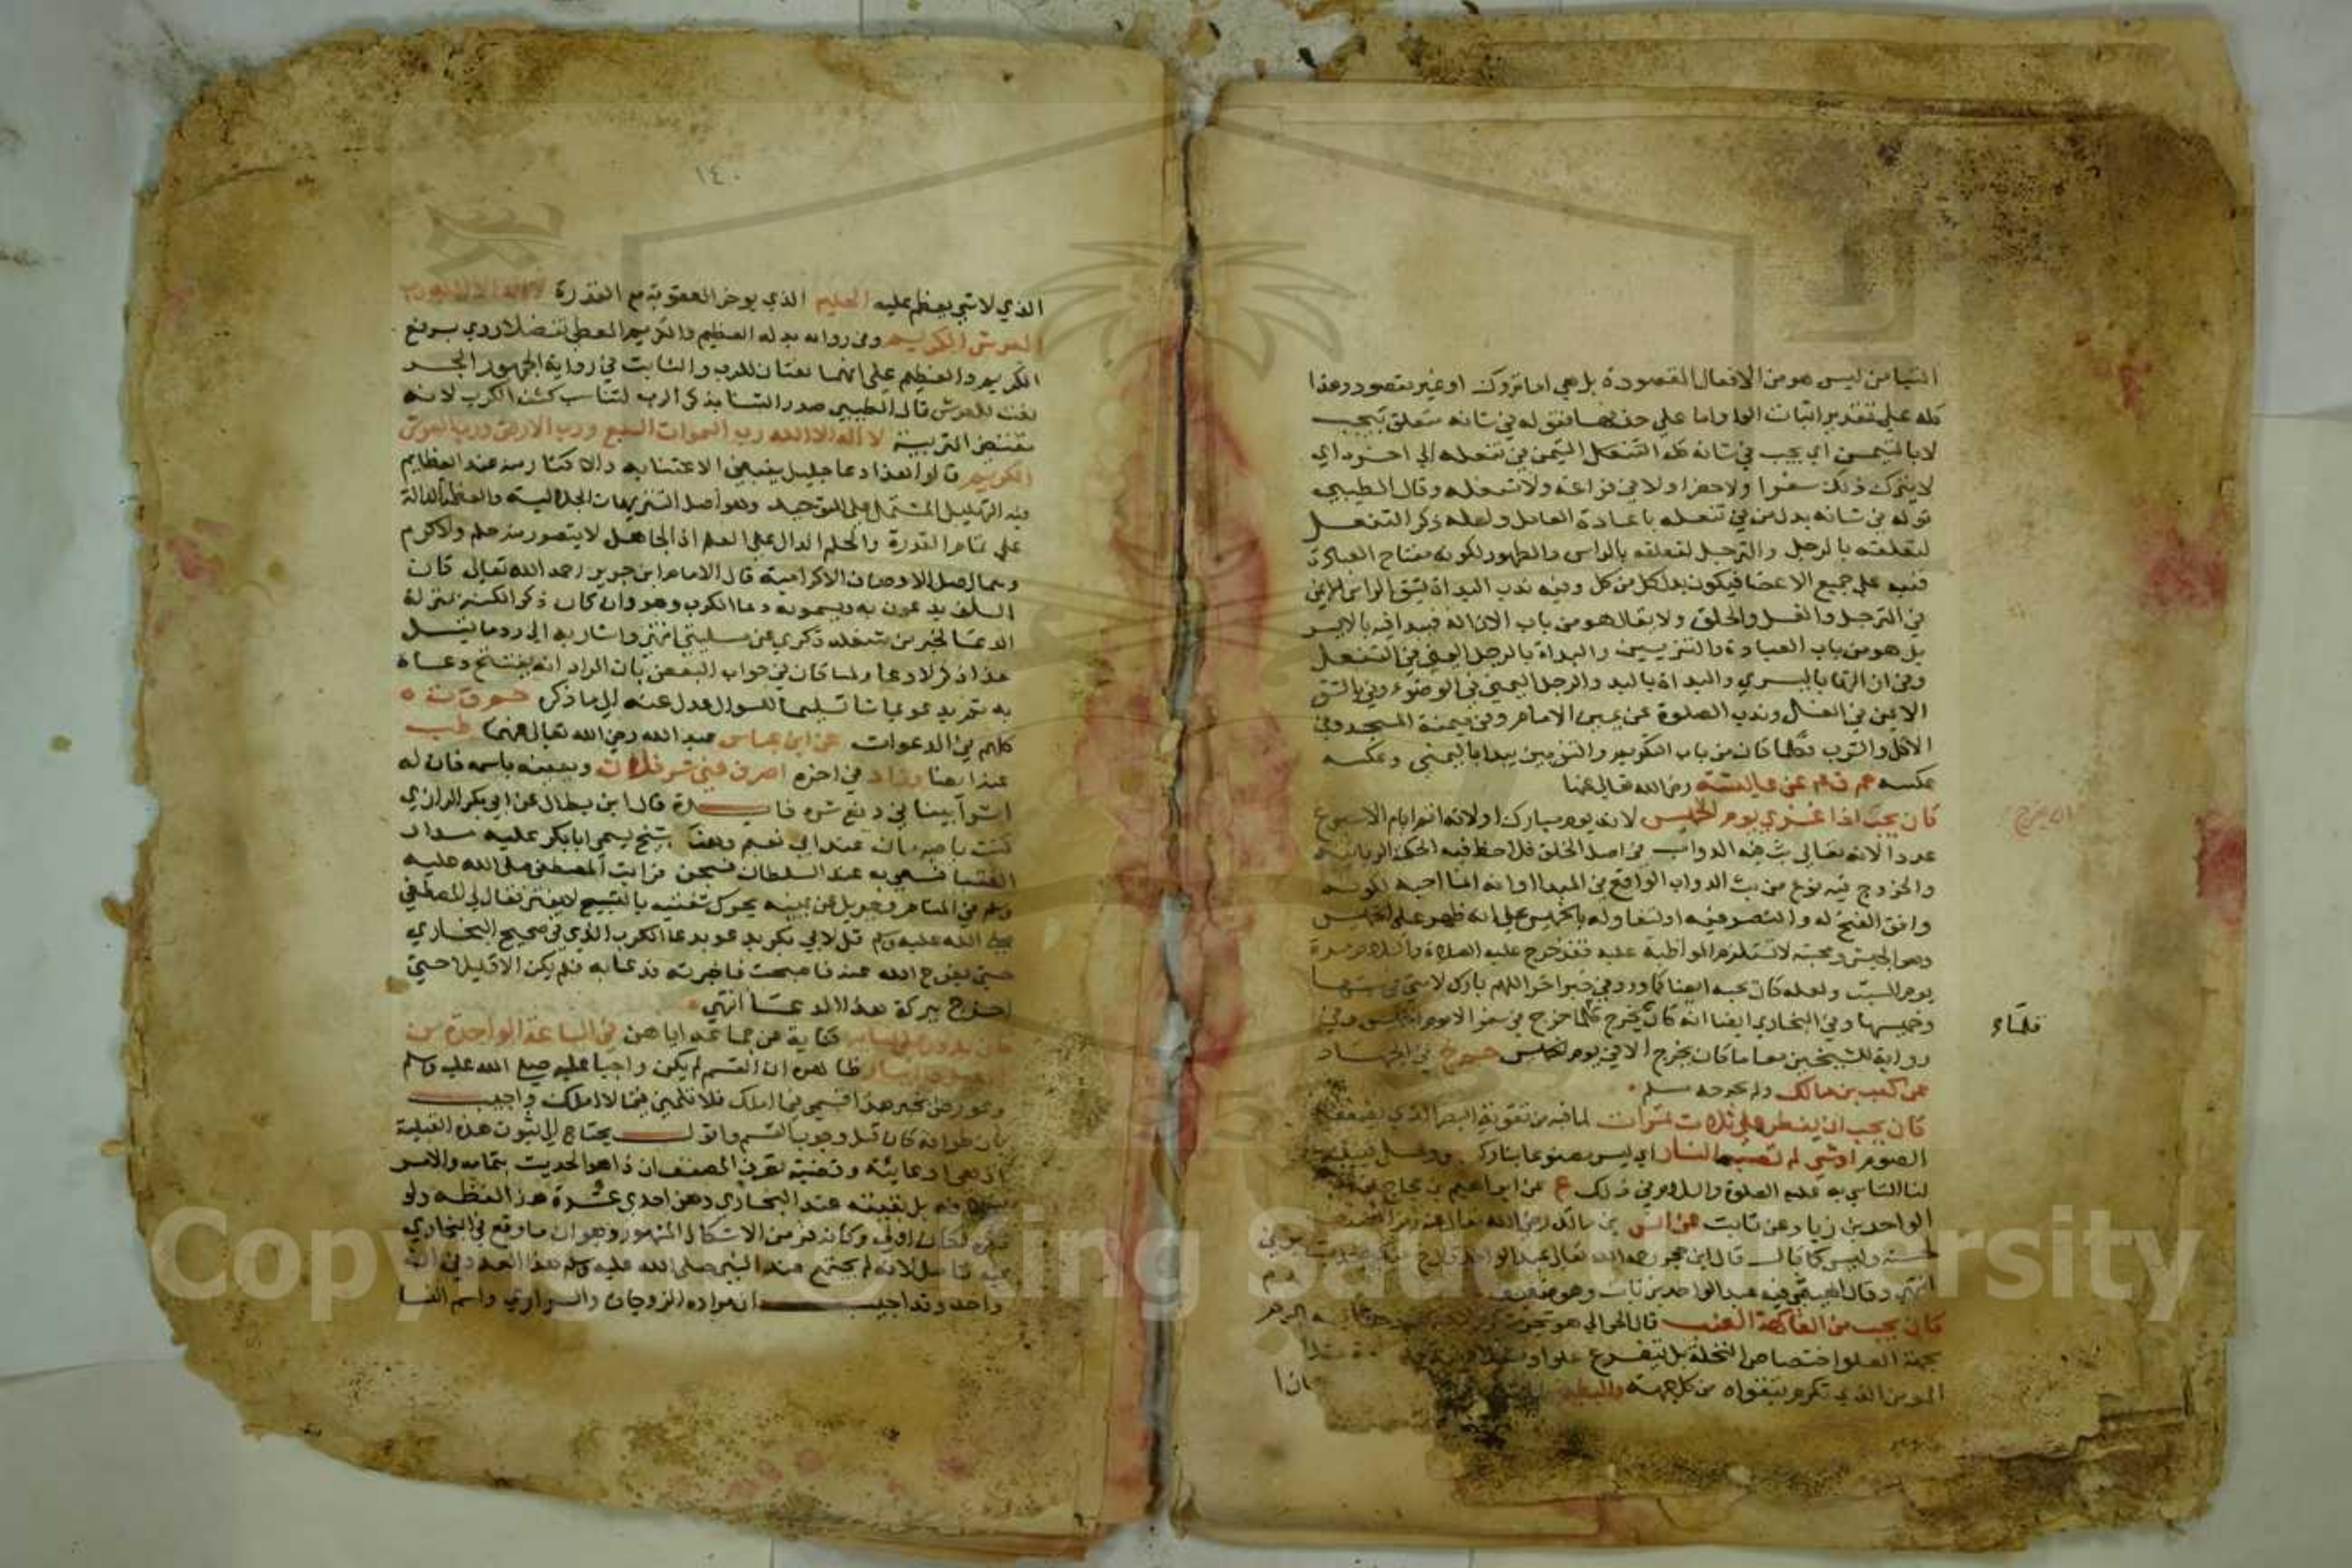 التيامن ليس هو من الافعال المقصودة بل هي اما تروك او غير مقصودة وهذا
كله على تقدير اثبات الواو واما على حذفها فقوله في شانه متعلق بيحب
لا بالتيمن اي يحب في شانه كله التيمن في تنعله الى اخره اي
لا يترك ذلك سفرا ولا حضرا ولا في فراغه ولا شغله وقال الطيبي
قوله في شانه بدل من في تنعله باعادة العامل ولعله ذكر التنعل
لتعلقه بالرجل والترجل لتعلقه بالراس والطهور لكونه مفتاح العبادة
فنبه على جميع الاعضا فيكون بدل كل من كل وفيه ندب البداة بشق الراس الايمن
في الترجل والغسل والحلق ولا يقال هو من باب الازالة فيبدا فيه بالايسر
بل هو من باب العبادة والتزيين والبداة بالرجل اليمنى في التنعل
وفي ازالتها باليسرى والبداة باليد والرجل اليمنى في الوضوء وفي بالشق
الايمن في الغسل وندب الصلوة عن يمين الامام وفي ميمنة المسجد وفي
الاكل والشرب فكلما كان من باب التكريم والتزيين يبدا باليمنى وعكسه
عكسه حم ق عم عن عايشة رضي الله تعالى عنها
كان يحب اذا غزى يوم الخميس لانه يوم مبارك او لانه اتم ايام الاسبوع
عددا لانه تعالى بث فيه الدواب في اصل الخلق فلاحظ فيه الحكمة الربانية
والخروج فيه نوع من بث الدواب الواقع في المبدا او انه انما احبه لكونه
وافق الفتح له والنصر فيه او لتفاوله بالخميس على انه ظهر على الخميس
وهو الجيش ومحبته لا تستلزم المواظبة عليه فقد خرج عليه الصلاة والسلام مرة
يوم السبت ولعله كان يحبه ايضا كما ورد في خبر اخر اللهم بارك لامتي في سبتها
وخميسها وفي البخاري ايضا انه كان يخرج كلما خرج في سفر الا يوم الخميس وفي
قلماء
رواية للشيخين معا ما كان يخرج الا في يوم الخميس حم خ في الجهاد
عن كعب بن مالك ولم يخرجه مسلم
كان يحب ان يفطر على ثلاث تمرات لما فيه من تقوية البصر الذي يضعفه
الصوم او شي لم تصبه النار اي ليس مصنوعا بنار
لنا التاسي به عليه الصلوة والسلام في ذلك ع عن ابراهيم بن حجاج عن
الواحد بن زياد عن ثابت عن انس بن مالك رضي الله تعالى عنه رمز المصنف
لحسنه وليس كما قال قال ابن حجر رحمه الله تعالى عبد الواحد قال خ منكر الحديث
انتهى وقال الهيثمي فيه عبد الواحد بن ثابت وهو ضعيف
كان يحب من الفاكهة العنب قال الحرالي هو شجر
بجهة العلو اختصاص النخلة بل يتفرع علوا و
المومن الذي تكرم بتقواه من كل جهة والبطيخ
١٤٠
الذي لا شي يعظم عليه الحليم الذي يوخر العقوبة مع القدرة لا اله الا الله رب
العرش الكريم وفي رواية بدله العظيم والكريم المعطي تفضلا روي برفع
الكريم والعظيم على انهما نعتان للرب والثابت في رواية الجمهور الجر
نعت للعرش قال الطيبي صدر الثنا بذكر الرب لتناسب كشف الكرب لانه
مقتضى التربية لا اله الا الله رب السموات السبع ورب الارض ورب العرش
الكريم قالوا هذا دعا جليل ينبغي الاعتنا به والاكثار منه عند العظايم
فيه التهليل المشتمل على التوحيد وهو اصل التنزيهات الجلالية والعظمة الدالة
على تمام القدرة والحلم الدال على العلم اذ الجاهل لا يتصور منه حلم ولا كرم
وهما اصل الاوصاف الاكرامية قال الامام ابن جرير رحمه الله تعالى كان
السلف يدعون به ويسمونه دعا الكرب وهو وان كان ذكرا لكنه بمنزلة
الدعا لخبر من شغله ذكري عن مسئلتي انتهى واشار به الى رد ما قيل
هذا ذكر لا دعا ولما كان في جواب البعض بان المراد انه يفتتح دعاه
به ثم يدعو بما شا تسليما للسوال عدل عنه الى ما ذكره حم ق ت ه
كلهم في الدعوات عن ابن عباس عبد الله رضي الله تعالى عنهما طب
عنه ايضا وزاد في اخره اصرف عني شر فلان ويعينه باسمه فان له
اثرا بينا في دفع شره فايدة قال ابن بطال عن ابي بكر الرازي
كنت باصبهان عند ابي نعيم وهنا شيخ يسمى ابا بكر عليه مدار
الفتيا فسعي به عند السلطان فسجن فرايت المصطفى صلى الله عليه
وسلم في المنام وجبريل عن يمينه يحرك شفتيه بالتسبيح لا يفتر فقال لي المصطفى
صلى الله عليه وسلم قل لابي بكر يدعو بدعا الكرب الذي في صحيح البخاري
حتى يفرج الله عنه فاصبحت فاخبرته فدعا به فلم يكن الا قليلا حتى
اخرج ببركة هذا الدعا انتهى
كان يدور على نسايه كناية عن جماعه اياهن في الساعة الواحدة من
الليل والنهار ظاهره ان القسم لم يكن واجبا عليه صلى الله عليه وسلم
وعورض بخبر هذا قسمي فيما املك فلا تلمني فيما لا املك واجيب
بان طوافه كان قبل وجوب القسم واقول يحتاج الى ثبوت هذه القبلية
اذ هي ادعائية وقضية تصرف المصنف ان ذا هو الحديث بتمامه والامر
بخلافه بل بقيته عند البخاري وهن احدى عشرة هذا لفظه ولو
ذكره لكان اولى وكانه فر من الاشكال المشهور وهو ان ما وقع في البخاري
فيه تامل لانه لم يجتمع عند النبي صلى الله عليه وسلم هذا العدد في ان
واحد وقد اجيب ان مراده الزوجات والسراري واسم النسا